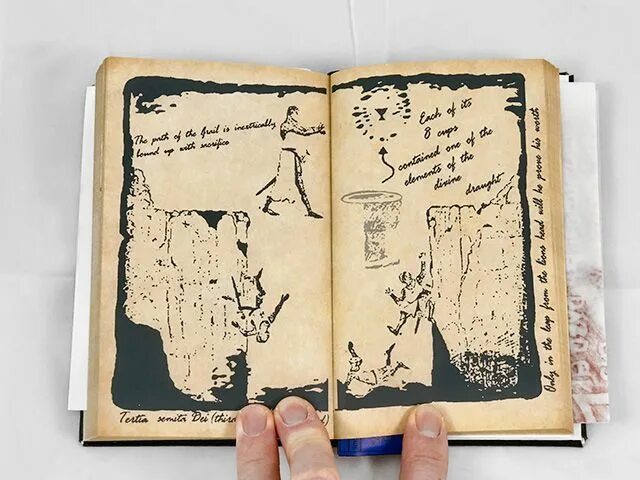 The path of the Grail is inextricably
bound up with sacrifice
Tertia semita Dei (third
Each of its
8 cups
contained one of the
elements of the
divine draught
Only in the leap from the lions head will he prove his worth